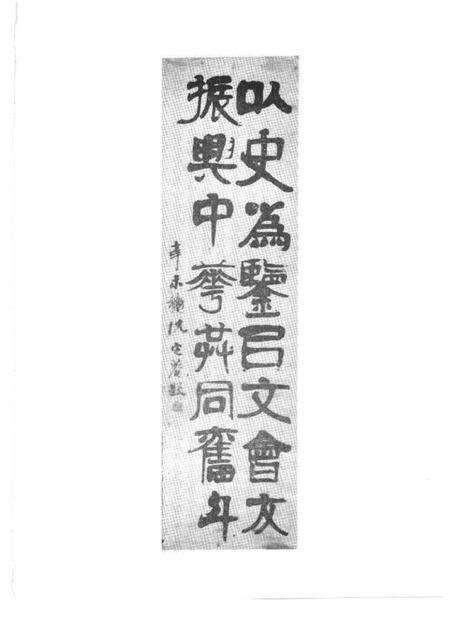 以史為鑒以文會友
振興中華共同奮斗
辛未